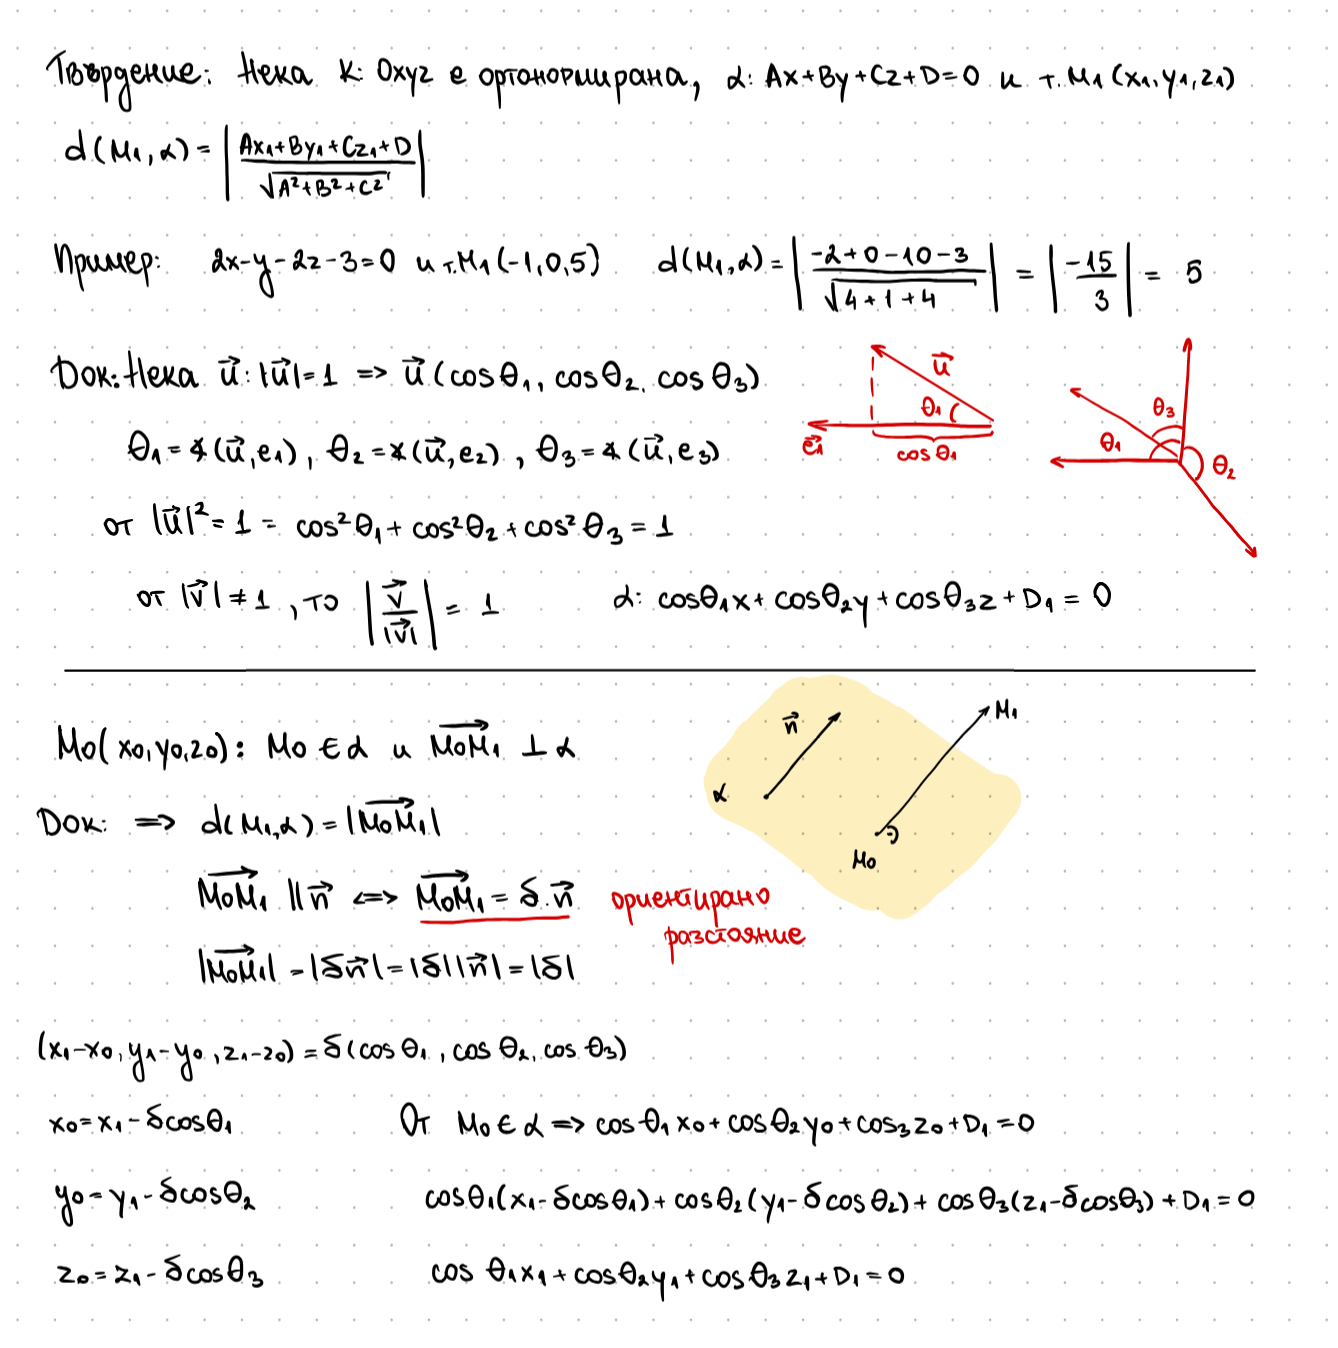 Твърдение: Нека K: Oxyz е ортонормирана, α: Ax+By+Cz+D=0 и т. M₁(x₁,y₁,z₁)
d(M₁,α) = |Ax₁+By₁+Cz₁+D / √A²+B²+C²|
Пример: 2x-y-2z-3=0 и т.M₁(-1,0,5) d(M₁,α) = |-2+0-10-3 / √4+1+4| = |-15/3| = 5
Док: Нека u⃗: |u⃗|=1 => u⃗(cosθ₁, cosθ₂, cosθ₃)
u⃗
θ₁
e⃗₁
cosθ₁
θ₃
θ₁
θ₂
θ₁=∢(u⃗,e₁), θ₂=∢(u⃗,e₂), θ₃=∢(u⃗,e₃)
от |u⃗|²=1= cos²θ₁+cos²θ₂+cos²θ₃=1
от |v⃗|≠1, то |v⃗/|v⃗|| = 1 α: cosθ₁x+cosθ₂y+cosθ₃z+D₁=0
M₀(x₀,y₀,z₀): M₀∈α и M₀M₁⃗ ⊥ α
n⃗
M₁
α
M₀
Док: => d(M₁,α)=|M₀M₁⃗|
M₀M₁⃗ || n⃗ <=> M₀M₁⃗ = δ.n⃗ ориентирано
разстояние
|M₀M₁⃗| = |δn⃗|=|δ||n⃗|=|δ|
(x₁-x₀, y₁-y₀, z₁-z₀) = δ(cosθ₁, cosθ₂, cosθ₃)
x₀=x₁-δcosθ₁ От M₀∈α => cosθ₁x₀+cosθ₂y₀+cos₃z₀+D₁=0
y₀=y₁-δcosθ₂ cosθ₁(x₁-δcosθ₁)+cosθ₂(y₁-δcosθ₂)+cosθ₃(z₁-δcosθ₃)+D₁=0
z₀=z₁-δcosθ₃ cosθ₁x₁+cosθ₂y₁+cosθ₃z₁+D₁=0